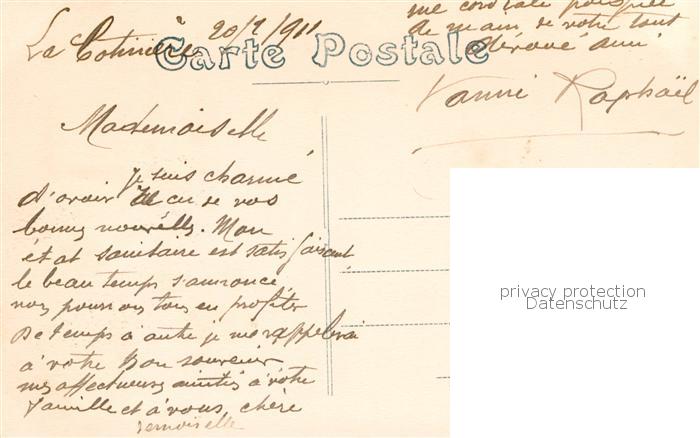 La Cotinière 20/7/1911
Carte Postale
Mademoiselle
Je suis charmé
d'avoir de vos
bonnes nouvelles. Mon
état sanitaire est satisfaisant
le beau temps s'annonce,
nous pourrons tous en profiter
De temps à autre je me rappelerai
à votre Bon souvenir
mes affectueuses amitiés à votre
famille et à vous, chère
demoiselle
une cordiale poignée
de main de votre tout
dévoué ami
Raphaël
privacy protection
Datenschutz